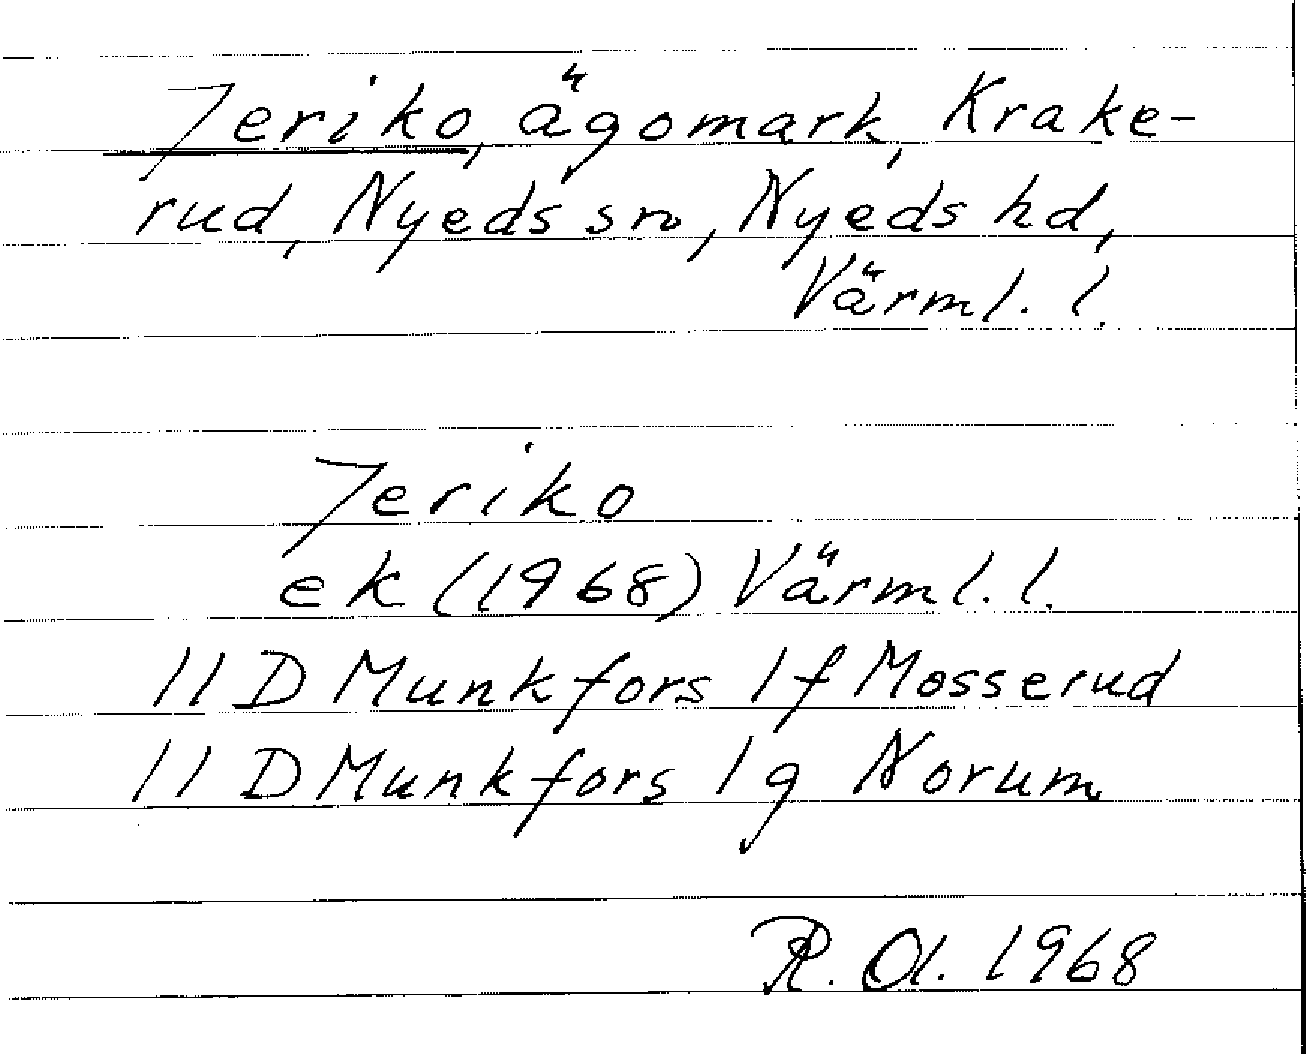 Jeriko, ägomark, Krake-
rud, Nyeds sn, Nyeds hd,
Värml. l.
Jeriko
ek (1968) Värml. l.
11 D Munkfors 1f Mosserud
11 D Munkfors 1g Norum
R. Ol. 1968